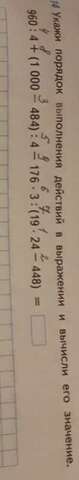 Укажи порядок выполнения действий в выражении и вычисли его значение.
4 8 3 5 9 6 7 1 2
960 : 4 + (1 000 − 484) : 4 − 176 · 3 : (19 · 24 − 448) =